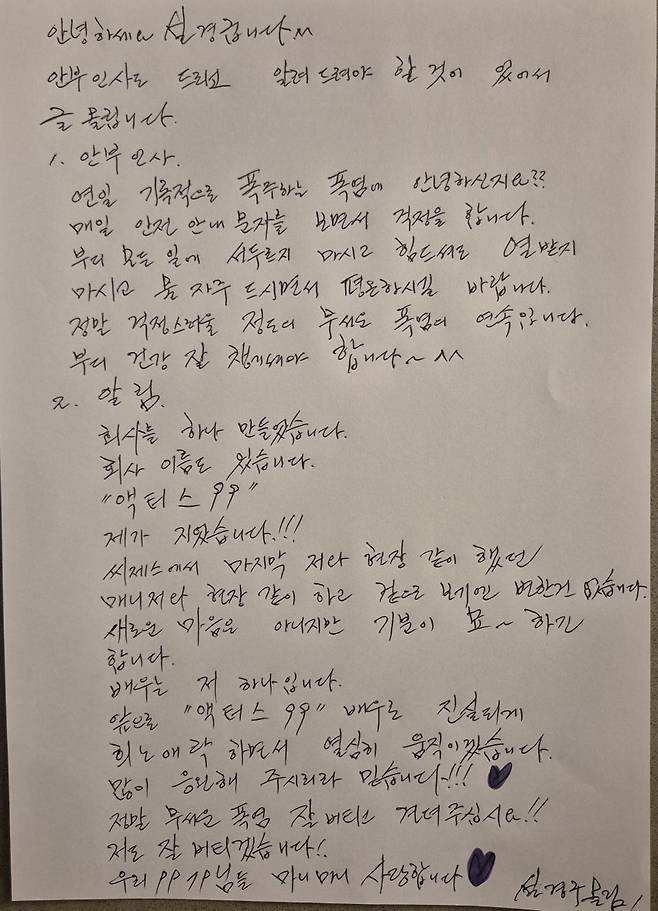 안녕하세요 설경굽니다^^
안부인사도 드리고 알려드려야 할 것이 있어서
글 올립니다.
1. 안부인사.
연일 기록적으로 폭주하는 폭염에 안녕하신지요??
매일 안전 안내 문자를 보면서 걱정을 합니다.
부디 모든 일에 서두르지 마시고 힘드셔도 열받지
마시고 물 자주 드시면서 평온하시길 바랍니다.
정말 걱정스러울 정도의 무서운 폭염의 연속입니다.
부디 건강 잘 챙기셔야 합니다~ ^^
2. 알림.
회사를 하나 만들었습니다.
회사 이름도 있습니다.
"액터스99"
제가 지었습니다.!!!
씨제스에서 마지막 저와 현장 같이 했던
매니저와 현장 같이 하고 겉으로 보기엔 변한건 없습니다.
새로운 마음은 아니지만 기분이 묘~ 하긴
합니다.
배우는 저 하나입니다.
앞으로 "액터스99" 배우로 진실되게
희노애락 하면서 열심히 움직이겠습니다.
많이 응원해 주시리라 믿습니다~!!!
정말 무서운 폭염 잘 버티고 견뎌주십시요!!
저도 잘 버티겠습니다!.
우리 님들 마니마니 사랑합니다
설경구 올림.